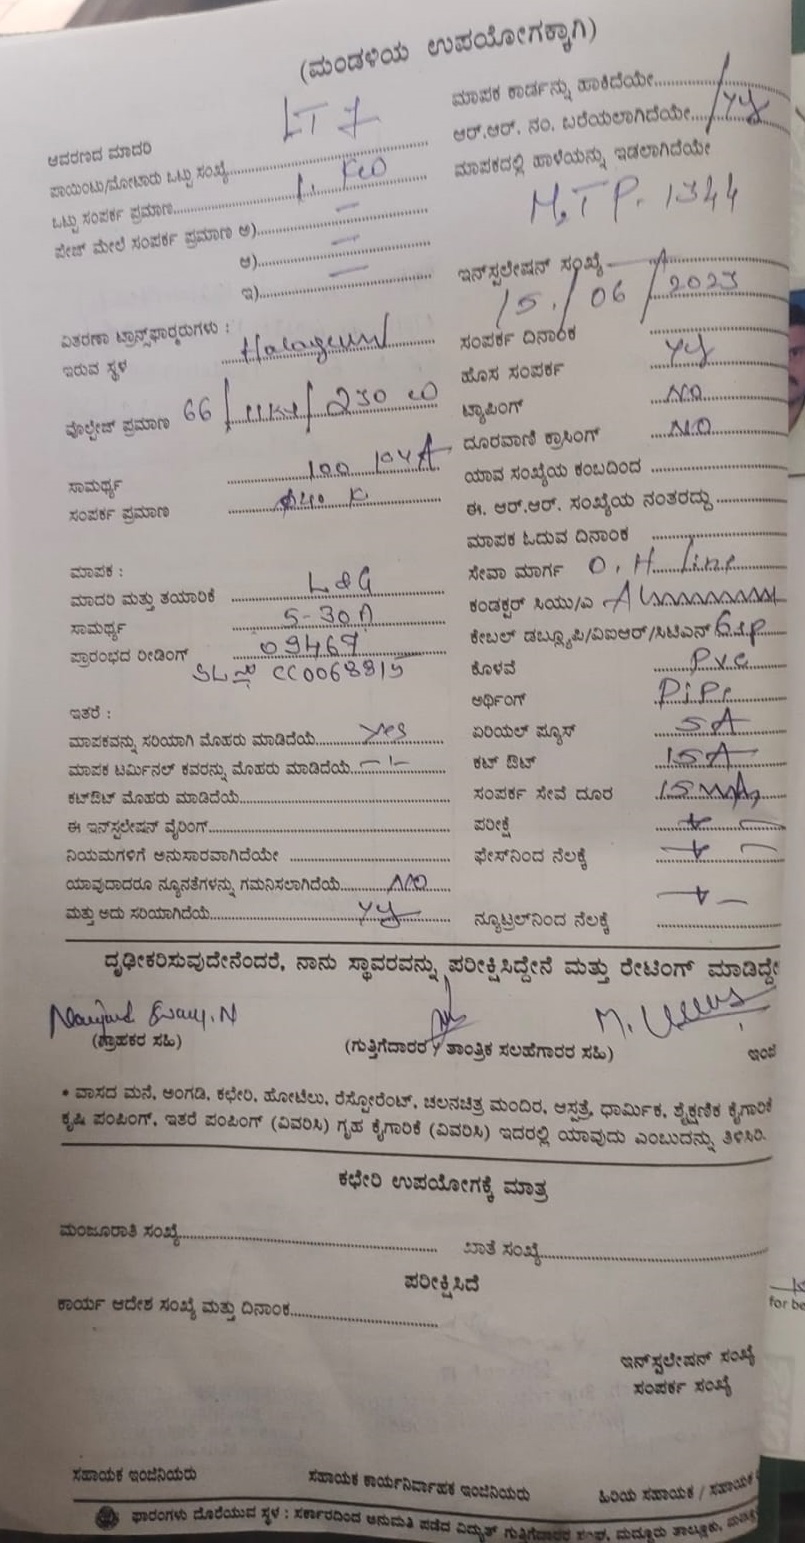 (ಮಂಡಳಿಯ ಉಪಯೋಗಕ್ಕಾಗಿ)
ಆವರಣದ ಮಾದರಿ LT 7
ಪಾಯಿಂಟು/ಮೋಟಾರು ಒಟ್ಟು ಸಂಖ್ಯೆ
ಒಟ್ಟು ಸಂಪರ್ಕ ಪ್ರಮಾಣ 1.
ಪೇಜ್ ಮೇಲೆ ಸಂಪರ್ಕ ಪ್ರಮಾಣ ಅ) —
ಆ) —
ಇ) —
ವಿತರಣಾ ಟ್ರಾನ್ಸ್‌ಫಾರ್ಮರುಗಳು :
ಇರುವ ಸ್ಥಳ
ವೋಲ್ಟೇಜ್ ಪ್ರಮಾಣ 66/11KV/230
ಸಾಮರ್ಥ್ಯ 100
ಸಂಪರ್ಕ ಪ್ರಮಾಣ
ಮಾಪಕ :
ಮಾದರಿ ಮತ್ತು ತಯಾರಿಕೆ L&G
ಸಾಮರ್ಥ್ಯ 5-30A
ಪ್ರಾರಂಭದ ರೀಡಿಂಗ್ 09467
SL ನಂ CC0068815
ಇತರೆ :
ಮಾಪಕವನ್ನು ಸರಿಯಾಗಿ ಮೊಹರು ಮಾಡಿದೆಯೆ Yes
ಮಾಪಕ ಟರ್ಮಿನಲ್ ಕವರನ್ನು ಮೊಹರು ಮಾಡಿದೆಯೆ —"—
ಕಟ್‌ಔಟ್ ಮೊಹರು ಮಾಡಿದೆಯೆ
ಈ ಇನ್‌ಸ್ಟಲೇಷನ್ ವೈರಿಂಗ್
ನಿಯಮಗಳಿಗೆ ಅನುಸಾರವಾಗಿದೆಯೇ
ಯಾವುದಾದರೂ ನ್ಯೂನತೆಗಳನ್ನು ಗಮನಿಸಲಾಗಿದೆಯೆ NO
ಮತ್ತು ಅದು ಸರಿಯಾಗಿದೆಯೆ
ಮಾಪಕ ಕಾರ್ಡನ್ನು ಹಾಕಿದೆಯೇ
ಆರ್.ಆರ್. ನಂ. ಬರೆಯಲಾಗಿದೆಯೇ
ಮಾಪಕದಲ್ಲಿ ಹಾಳೆಯನ್ನು ಇಡಲಾಗಿದೆಯೇ
MTP. 1344
ಇನ್‌ಸ್ಟಲೇಷನ್ ಸಂಖ್ಯೆ
15/06/2023
ಸಂಪರ್ಕ ದಿನಾಂಕ
ಹೊಸ ಸಂಪರ್ಕ
ಟ್ಯಾಪಿಂಗ್ NO
ದೂರವಾಣಿ ಕ್ರಾಸಿಂಗ್ NO
ಯಾವ ಸಂಖ್ಯೆಯ ಕಂಬದಿಂದ
ಈ. ಆರ್.ಆರ್. ಸಂಖ್ಯೆಯ ನಂತರದ್ದು
ಮಾಪಕ ಓದುವ ದಿನಾಂಕ
ಸೇವಾ ಮಾರ್ಗ O.H line
ಕಂಡಕ್ಟರ್ ಸಿಯು/ಎ
ಕೇಬಲ್ ಡಬ್ಲ್ಯೂಪಿ/ವಿಐಆರ್/ಸಿಟಿಎಸ್
ಕೊಳವೆ PVC
ಅರ್ಥಿಂಗ್ Pipe
ಏರಿಯಲ್ ಫ್ಯೂಸ್ 5A
ಕಟ್ ಔಟ್ 15A
ಸಂಪರ್ಕ ಸೇವೆ ದೂರ
ಪರೀಕ್ಷೆ
ಫೇಸ್‌ನಿಂದ ನೆಲಕ್ಕೆ
ನ್ಯೂಟ್ರಲ್‌ನಿಂದ ನೆಲಕ್ಕೆ
ದೃಢೀಕರಿಸುವುದೇನೆಂದರೆ, ನಾನು ಸ್ಥಾವರವನ್ನು ಪರೀಕ್ಷಿಸಿದ್ದೇನೆ ಮತ್ತು ರೇಟಿಂಗ್ ಮಾಡಿದ್ದೇ
(ಗ್ರಾಹಕರ ಸಹಿ) (ಗುತ್ತಿಗೆದಾರರ / ತಾಂತ್ರಿಕ ಸಲಹೆಗಾರರ ಸಹಿ) ಇಂಜಿ
• ವಾಸದ ಮನೆ, ಅಂಗಡಿ, ಕಛೇರಿ, ಹೋಟೆಲು, ರೆಸ್ಟೋರೆಂಟ್, ಚಲನಚಿತ್ರ ಮಂದಿರ, ಆಸ್ಪತ್ರೆ, ಧಾರ್ಮಿಕ, ಶೈಕ್ಷಣಿಕ ಕೈಗಾರಿಕೆ
ಕೃಷಿ ಪಂಪಿಂಗ್, ಇತರೆ ಪಂಪಿಂಗ್ (ವಿವರಿಸಿ) ಗೃಹ ಕೈಗಾರಿಕೆ (ವಿವರಿಸಿ) ಇದರಲ್ಲಿ ಯಾವುದು ಎಂಬುದನ್ನು ತಿಳಿಸಿರಿ.
ಕಛೇರಿ ಉಪಯೋಗಕ್ಕೆ ಮಾತ್ರ
ಮಂಜೂರಾತಿ ಸಂಖ್ಯೆ ಖಾತೆ ಸಂಖ್ಯೆ
ಪರೀಕ್ಷಿಸಿದೆ
ಕಾರ್ಯ ಆದೇಶ ಸಂಖ್ಯೆ ಮತ್ತು ದಿನಾಂಕ
ಇನ್‌ಸ್ಟಲೇಷನ್ ಸಂಖ್ಯೆ
ಸಂಪರ್ಕ ಸಂಖ್ಯೆ
ಸಹಾಯಕ ಇಂಜಿನಿಯರು ಸಹಾಯಕ ಕಾರ್ಯನಿರ್ವಾಹಕ ಇಂಜಿನಿಯರು ಹಿರಿಯ ಸಹಾಯಕ / ಸಹಾಯಕ
ಫಾರಂಗಳು ದೊರೆಯುವ ಸ್ಥಳ : ಸರ್ಕಾರದಿಂದ ಅನುಮತಿ ಪಡೆದ ವಿದ್ಯುತ್ ಗುತ್ತಿಗೆದಾರರ ಸಂಘ, ಮದ್ದೂರು ತಾಲ್ಲೂಕು,
for be